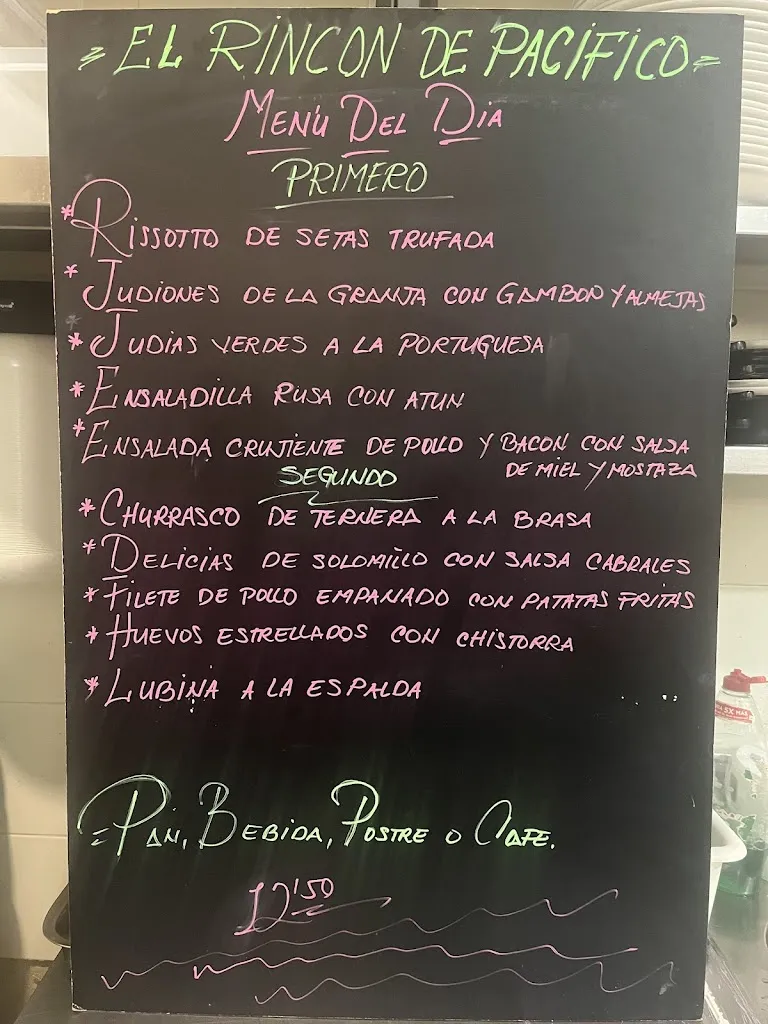 = EL RINCON DE PACIFICO =
MENÚ DEL DIA
PRIMERO
* RISSOTTO DE SETAS TRUFADA
* JUDIONES DE LA GRANJA CON GAMBON Y ALMEJAS
* JUDIAS VERDES A LA PORTUGUESA
* ENSALADILLA RUSA CON ATUN
* ENSALADA CRUJIENTE DE POLLO Y BACON CON SALSA
DE MIEL Y MOSTAZA
SEGUNDO
* CHURRASCO DE TERNERA A LA BRASA
* DELICIAS DE SOLOMILLO CON SALSA CABRALES
* FILETE DE POLLO EMPANADO CON PATATAS FRITAS
* HUEVOS ESTRELLADOS CON CHISTORRA
* LUBINA A LA ESPALDA
= PAN, BEBIDA, POSTRE O CAFE.
12'50